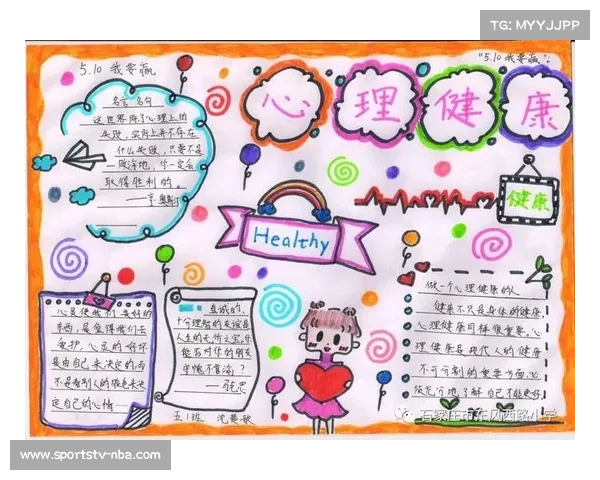 TG: MYYJJPP
5.10 我要赢
"5.10 我要赢":
心理健康
名言名句
这世界除了心理上的
失败，实际上并不存在
什么失败，只要不是
一败涂地，你一定会
取得胜利的。
——亨·奥斯汀
健康
Healthy
心灵使我们美好的
东西，最重得我们去
爱护，心灵的好坏
是由自己来决定的，而
不是看别人的脸色来决
定自己的心情……
真诚的、
十分理智的友谊是
人生的无价之宝，你
能否对你的朋友
守愧不渝？
——马克思
五1班 沈
做一个心理健康的人
健康不只是身体的健康，
心理健康同样很重要，心
理健康是现代人的健康
不可分割的重要方面。
依充分地了解自己才能更好
石家庄市东风西路小学
www.sportstv-nba.com